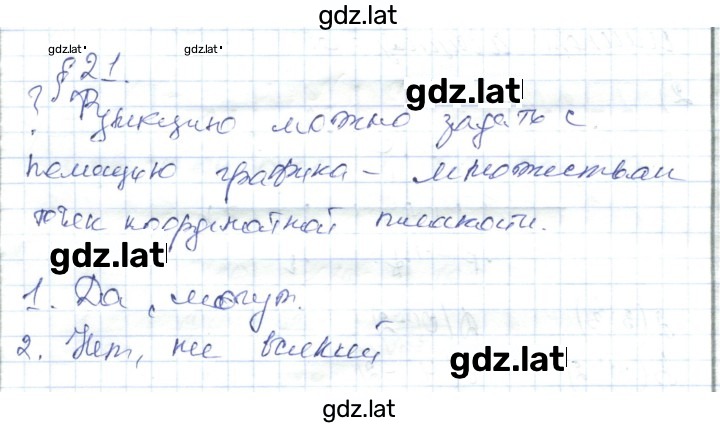 gdz.lat
gdz.lat gdz.lat
§21.
gdz.lat
? Функцию можно задать с
помощию графика – множеством
точек координатной плоскости.
gdz.lat
1. Да, могут.
2. Нет, не всякий
gdz.lat
gdz.lat